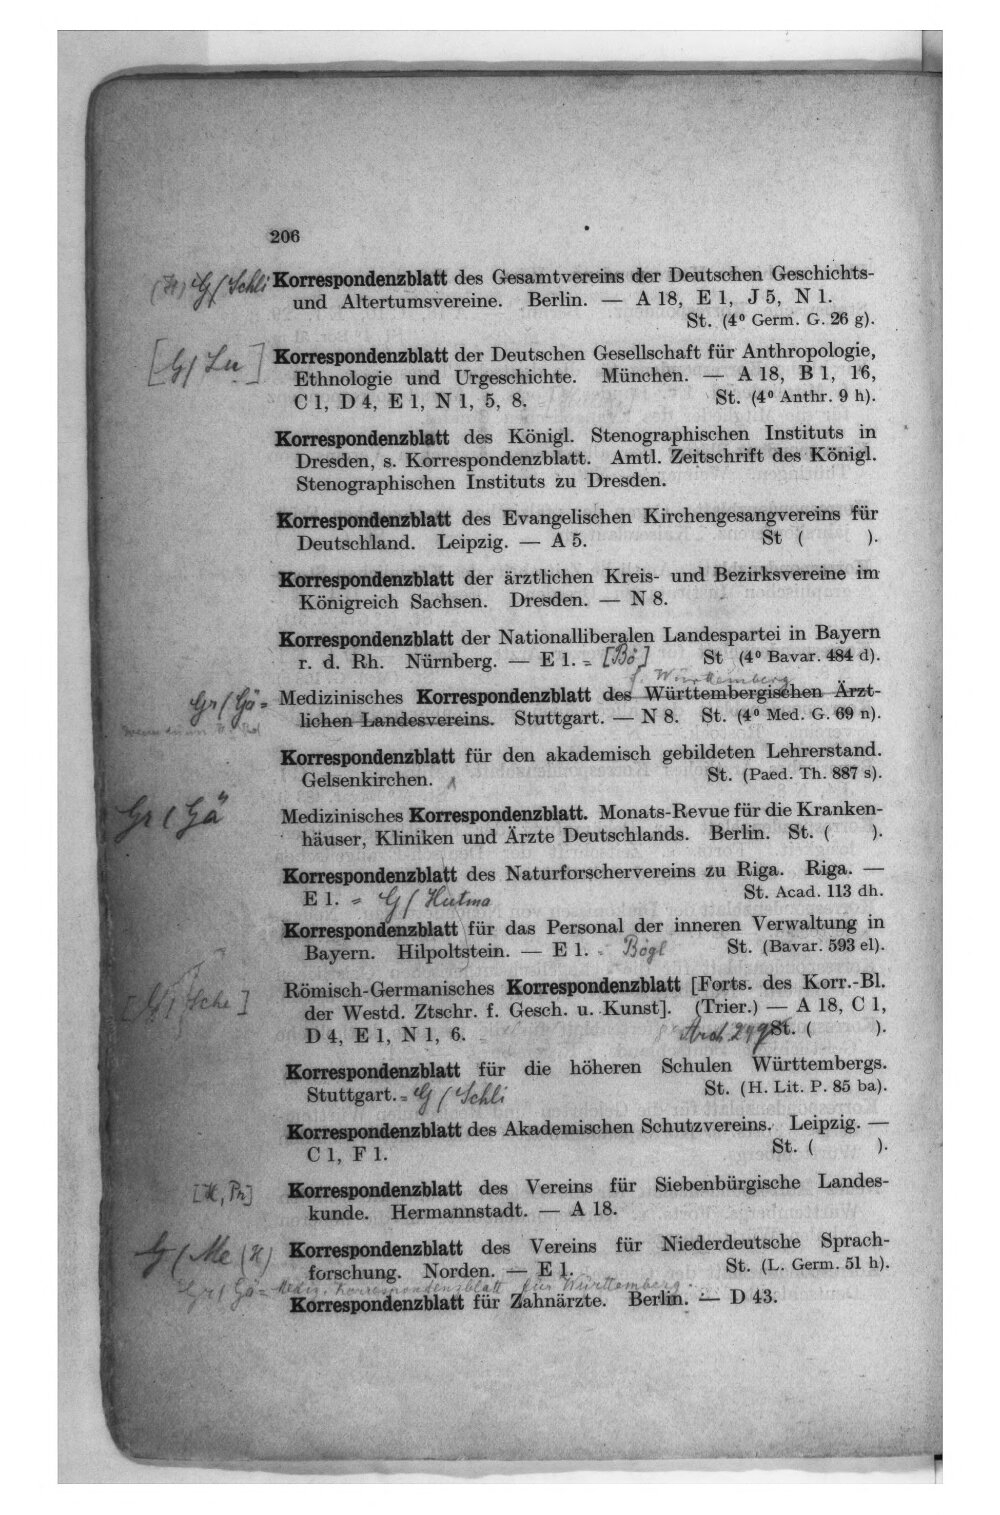 206
(H) G/Schli Korrespondenzblatt des Gesamtvereins der Deutschen Geschichts-
und Altertumsvereine. Berlin. — A 18, E 1, J 5, N 1.
St. (4⁰ Germ. G. 26 g).
[G/Lu] Korrespondenzblatt der Deutschen Gesellschaft für Anthropologie,
Ethnologie und Urgeschichte. München. — A 18, B 1, 16,
C 1, D 4, E 1, N 1, 5, 8. St. (4⁰ Anthr. 9 h).
Korrespondenzblatt des Königl. Stenographischen Instituts in
Dresden, s. Korrespondenzblatt. Amtl. Zeitschrift des Königl.
Stenographischen Instituts zu Dresden.
Korrespondenzblatt des Evangelischen Kirchengesangvereins für
Deutschland. Leipzig. — A 5. St ( ).
Korrespondenzblatt der ärztlichen Kreis- und Bezirksvereine im
Königreich Sachsen. Dresden. — N 8.
Korrespondenzblatt der Nationalliberalen Landespartei in Bayern
r. d. Rh. Nürnberg. — E 1. = [Bö] St (4⁰ Bavar. 484 d).
f. Württemberg
Gr/Gä = Medizinisches Korrespondenzblatt des Württembergischen Ärzt-
lichen Landesvereins. Stuttgart. — N 8. St. (4⁰ Med. G. 69 n).
Korrespondenzblatt für den akademisch gebildeten Lehrerstand.
Gelsenkirchen. St. (Paed. Th. 887 s).
Gr/Gä Medizinisches Korrespondenzblatt. Monats-Revue für die Kranken-
häuser, Kliniken und Ärzte Deutschlands. Berlin. St. ( ).
Korrespondenzblatt des Naturforschervereins zu Riga. Riga. —
E 1. = G/Hutma St. Acad. 113 dh.
Korrespondenzblatt für das Personal der inneren Verwaltung in
Bayern. Hilpoltstein. — E 1. = Bögl St. (Bavar. 593 el).
[G/Sche] Römisch-Germanisches Korrespondenzblatt [Forts. des Korr.-Bl.
der Westd. Ztschr. f. Gesch. u. Kunst]. (Trier.) — A 18, C 1,
D 4, E 1, N 1, 6. St. ( ).
Korrespondenzblatt für die höheren Schulen Württembergs.
Stuttgart. = G/Schli St. (H. Lit. P. 85 ba).
Korrespondenzblatt des Akademischen Schutzvereins. Leipzig. —
C 1, F 1. St. ( ).
[H, Ph] Korrespondenzblatt des Vereins für Siebenbürgische Landes-
kunde. Hermannstadt. — A 18.
G/Me (H) Korrespondenzblatt des Vereins für Niederdeutsche Sprach-
forschung. Norden. — E 1. St. (L. Germ. 51 h).
Gr/Gä = Mediz. Korrespondenzblatt für Württemberg.
Korrespondenzblatt für Zahnärzte. Berlin. — D 43.